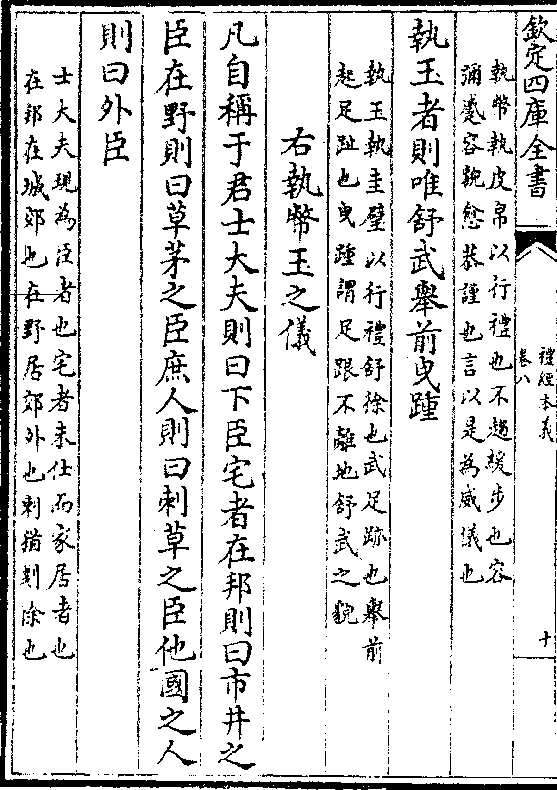 欽定四庫全書
禮經本義
卷八
十
執幣執皮帛以行禮也不趨緩步也容
彌蹙容貌愈恭謹也言以是為威儀也
執玉者則唯舒武舉前曳踵
執玉執圭璧以行禮舒徐也武足跡也舉前
起足趾也曳踵謂足跟不離地舒武之貌
右執幣玉之儀
凡自稱于君士大夫則曰下臣宅者在邦則曰市井之
臣在野則曰草茅之臣庶人則曰刺草之臣他國之人
則曰外臣
士大夫現為臣者也宅者未仕而家居者也
在邦在城郊也在野居郊外也刺猶剗除也